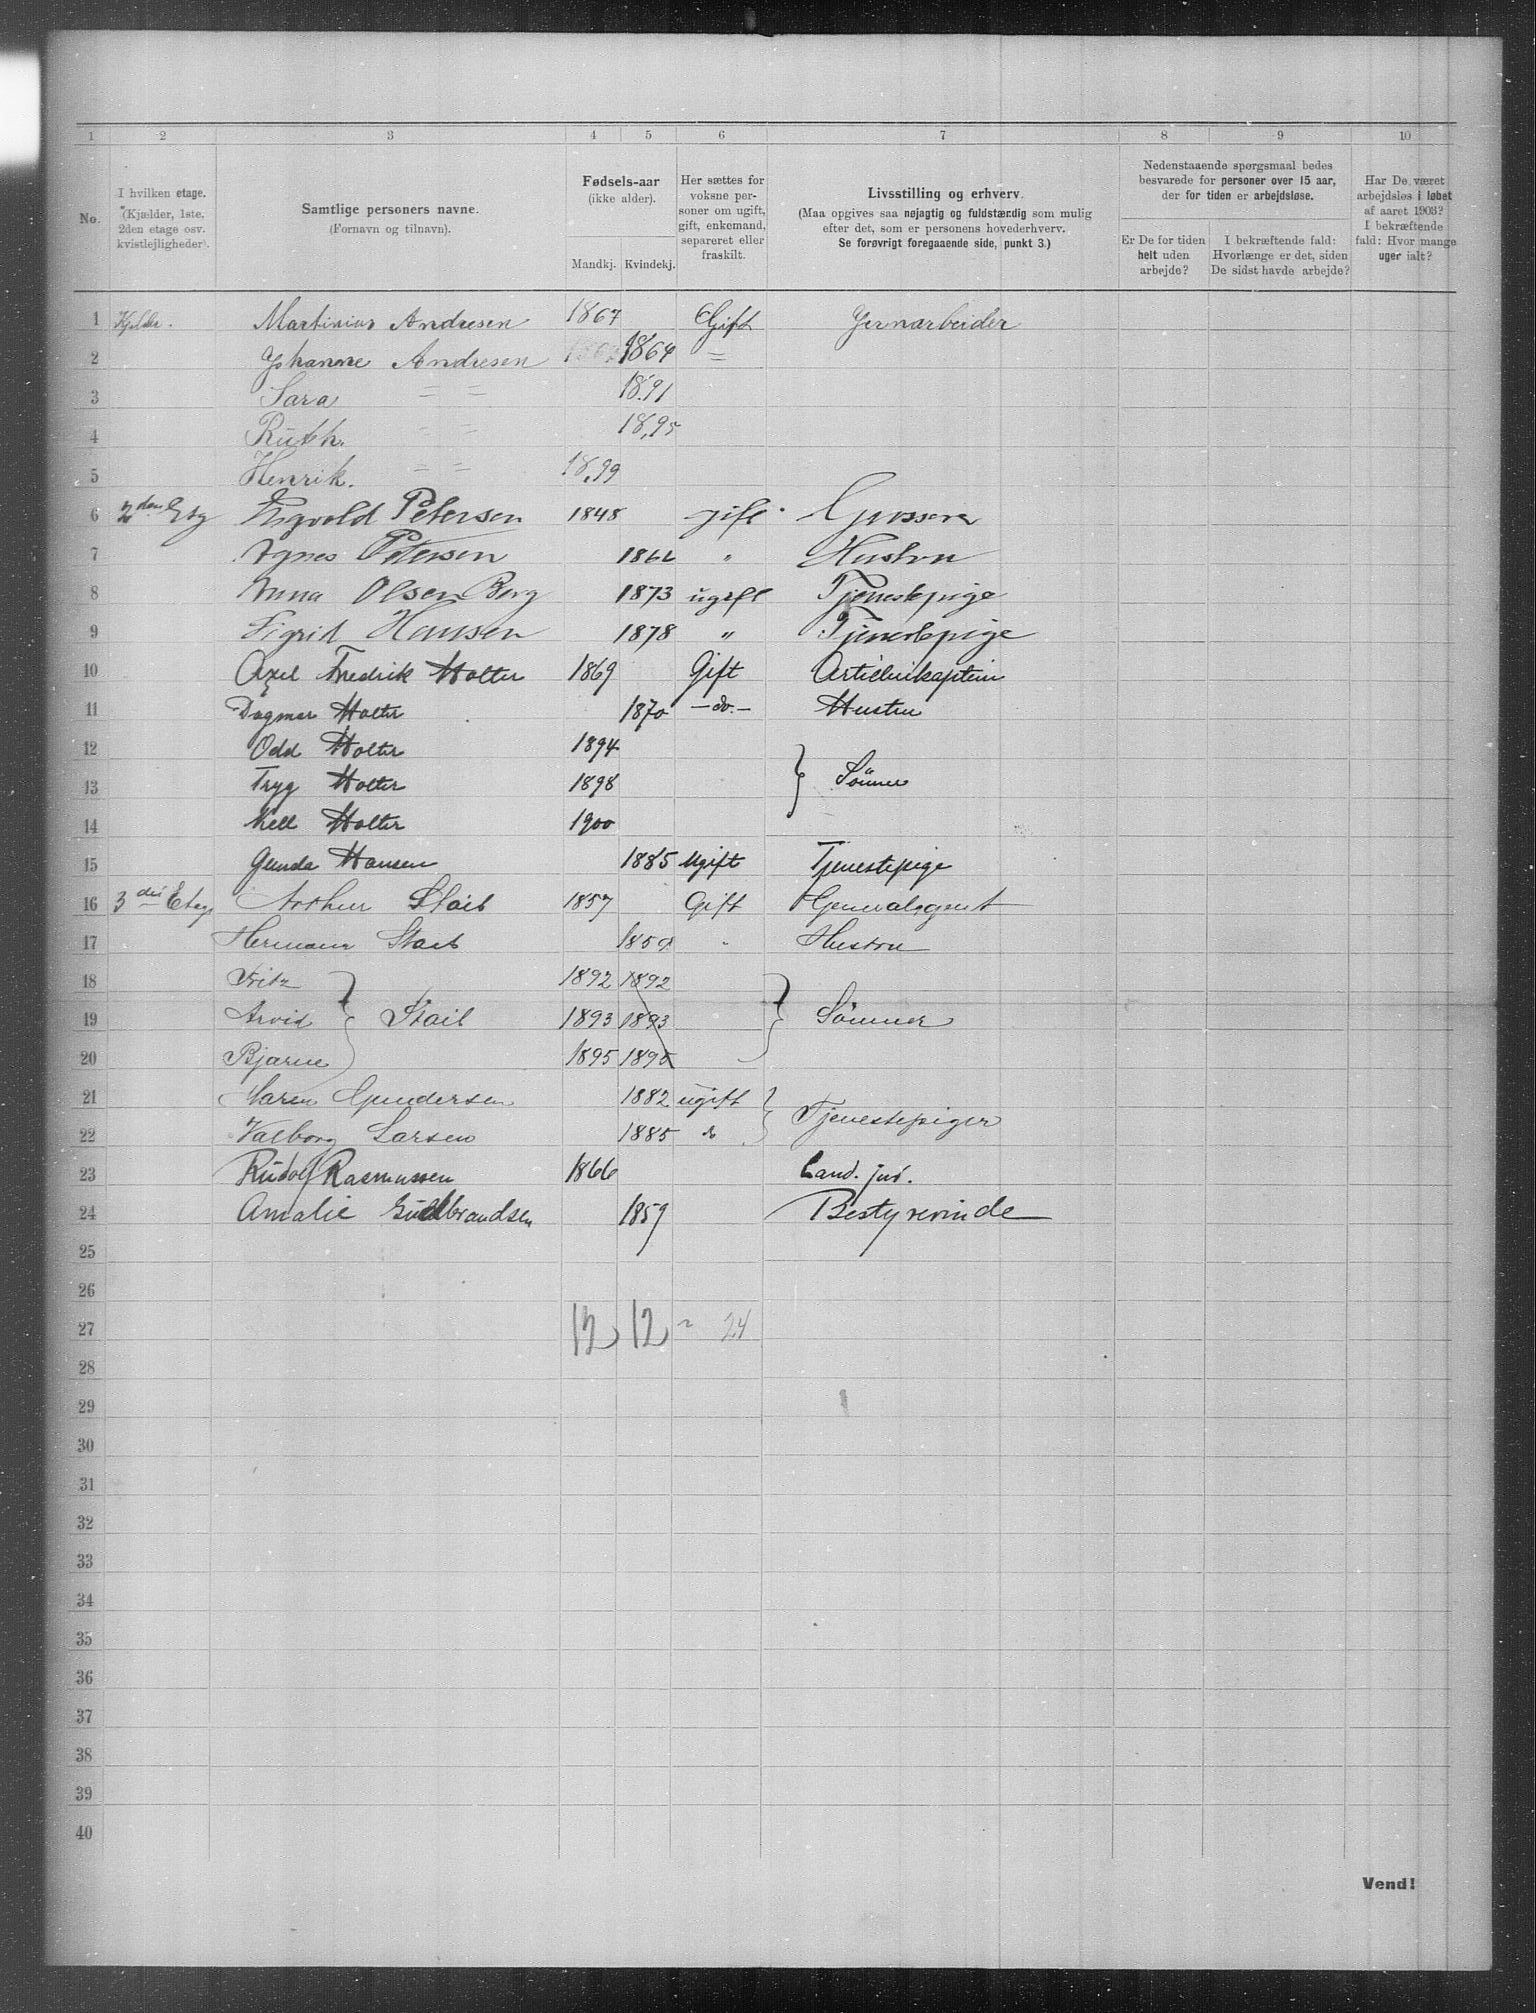 1 2 3 4 5 6 7 8 9 10
No.
I hvilken etage.
(Kjælder, 1ste,
2den etage osv.
kvistlejligheder).
Samtlige personers navne.
(Fornavn og tilnavn).
Fødsels-aar
(ikke alder).
Mandkj. Kvindekj.
Her sættes for
voksne per-
soner om ugift,
gift, enkemand,
separeret eller
fraskilt.
Livsstilling og erhverv.
(Maa opgives saa nøjagtig og fuldstændig som mulig
efter det, som er personens hovederhverv.
Se forøvrigt foregaaende side, punkt 3.)
Nedenstaaende spørgsmaal bedes
besvarede for personer over 15 aar,
der for tiden er arbejdsløse.
Er De for tiden
helt uden
arbejde?
I bekræftende fald:
Hvorlænge er det, siden
De sidst havde arbejde?
Har De været
arbejdsløs i løbet
af aaret 1903?
I bekræftende
fald: Hvor mange
uger ialt?
1 Kjelder. Martinius Andresen 1867 Gift Jernarbeider
2 Johanne Andresen 1864 〃
3 Sara 〃 〃 1891
4 Ruth. 〃 〃 1895
5 Henrik. 〃 〃 1899
6 2den Etg Sigvold Petersen 1848 gift Grosserer
7 Agnes Petersen 1862 〃 Hustru
8 Anna Olsen Berg 1873 ugift Tjenestepige
9 Sigrid Hansen 1878 〃 Tjenestepige
10 Axel Fredrik Holter 1869 Gift Artillerikaptein
11 Dagmar Holter 1870 -do.- Hustru
12 Odd Holter 1894
13 Tryg Holter 1898 } Sönner
14 Kell Holter 1900
15 Gunda Hansen 1885 Ugift Tjenestepige
16 3die Etage Arthur Staib 1857 Gift Generalagent
17 Hermane Staib 1859 〃 Hustru
18 Fritz 1892 1892
19 Arvid } Staib 1893 1893 } Sönner
20 Bjarne 1895 1895
21 Maren Gundersen 1882 ugift } Tjenestepiger
22 Valborg Larsen 1885 do
23 Rudolf Rasmussen 1866 Cand. jur.
24 Amalie Guldbrandsen 1859 Bestyrerinde
25
26
27 12 12 = 24
28
29
30
31
32
33
34
35
36
37
38
39
40
Vend!